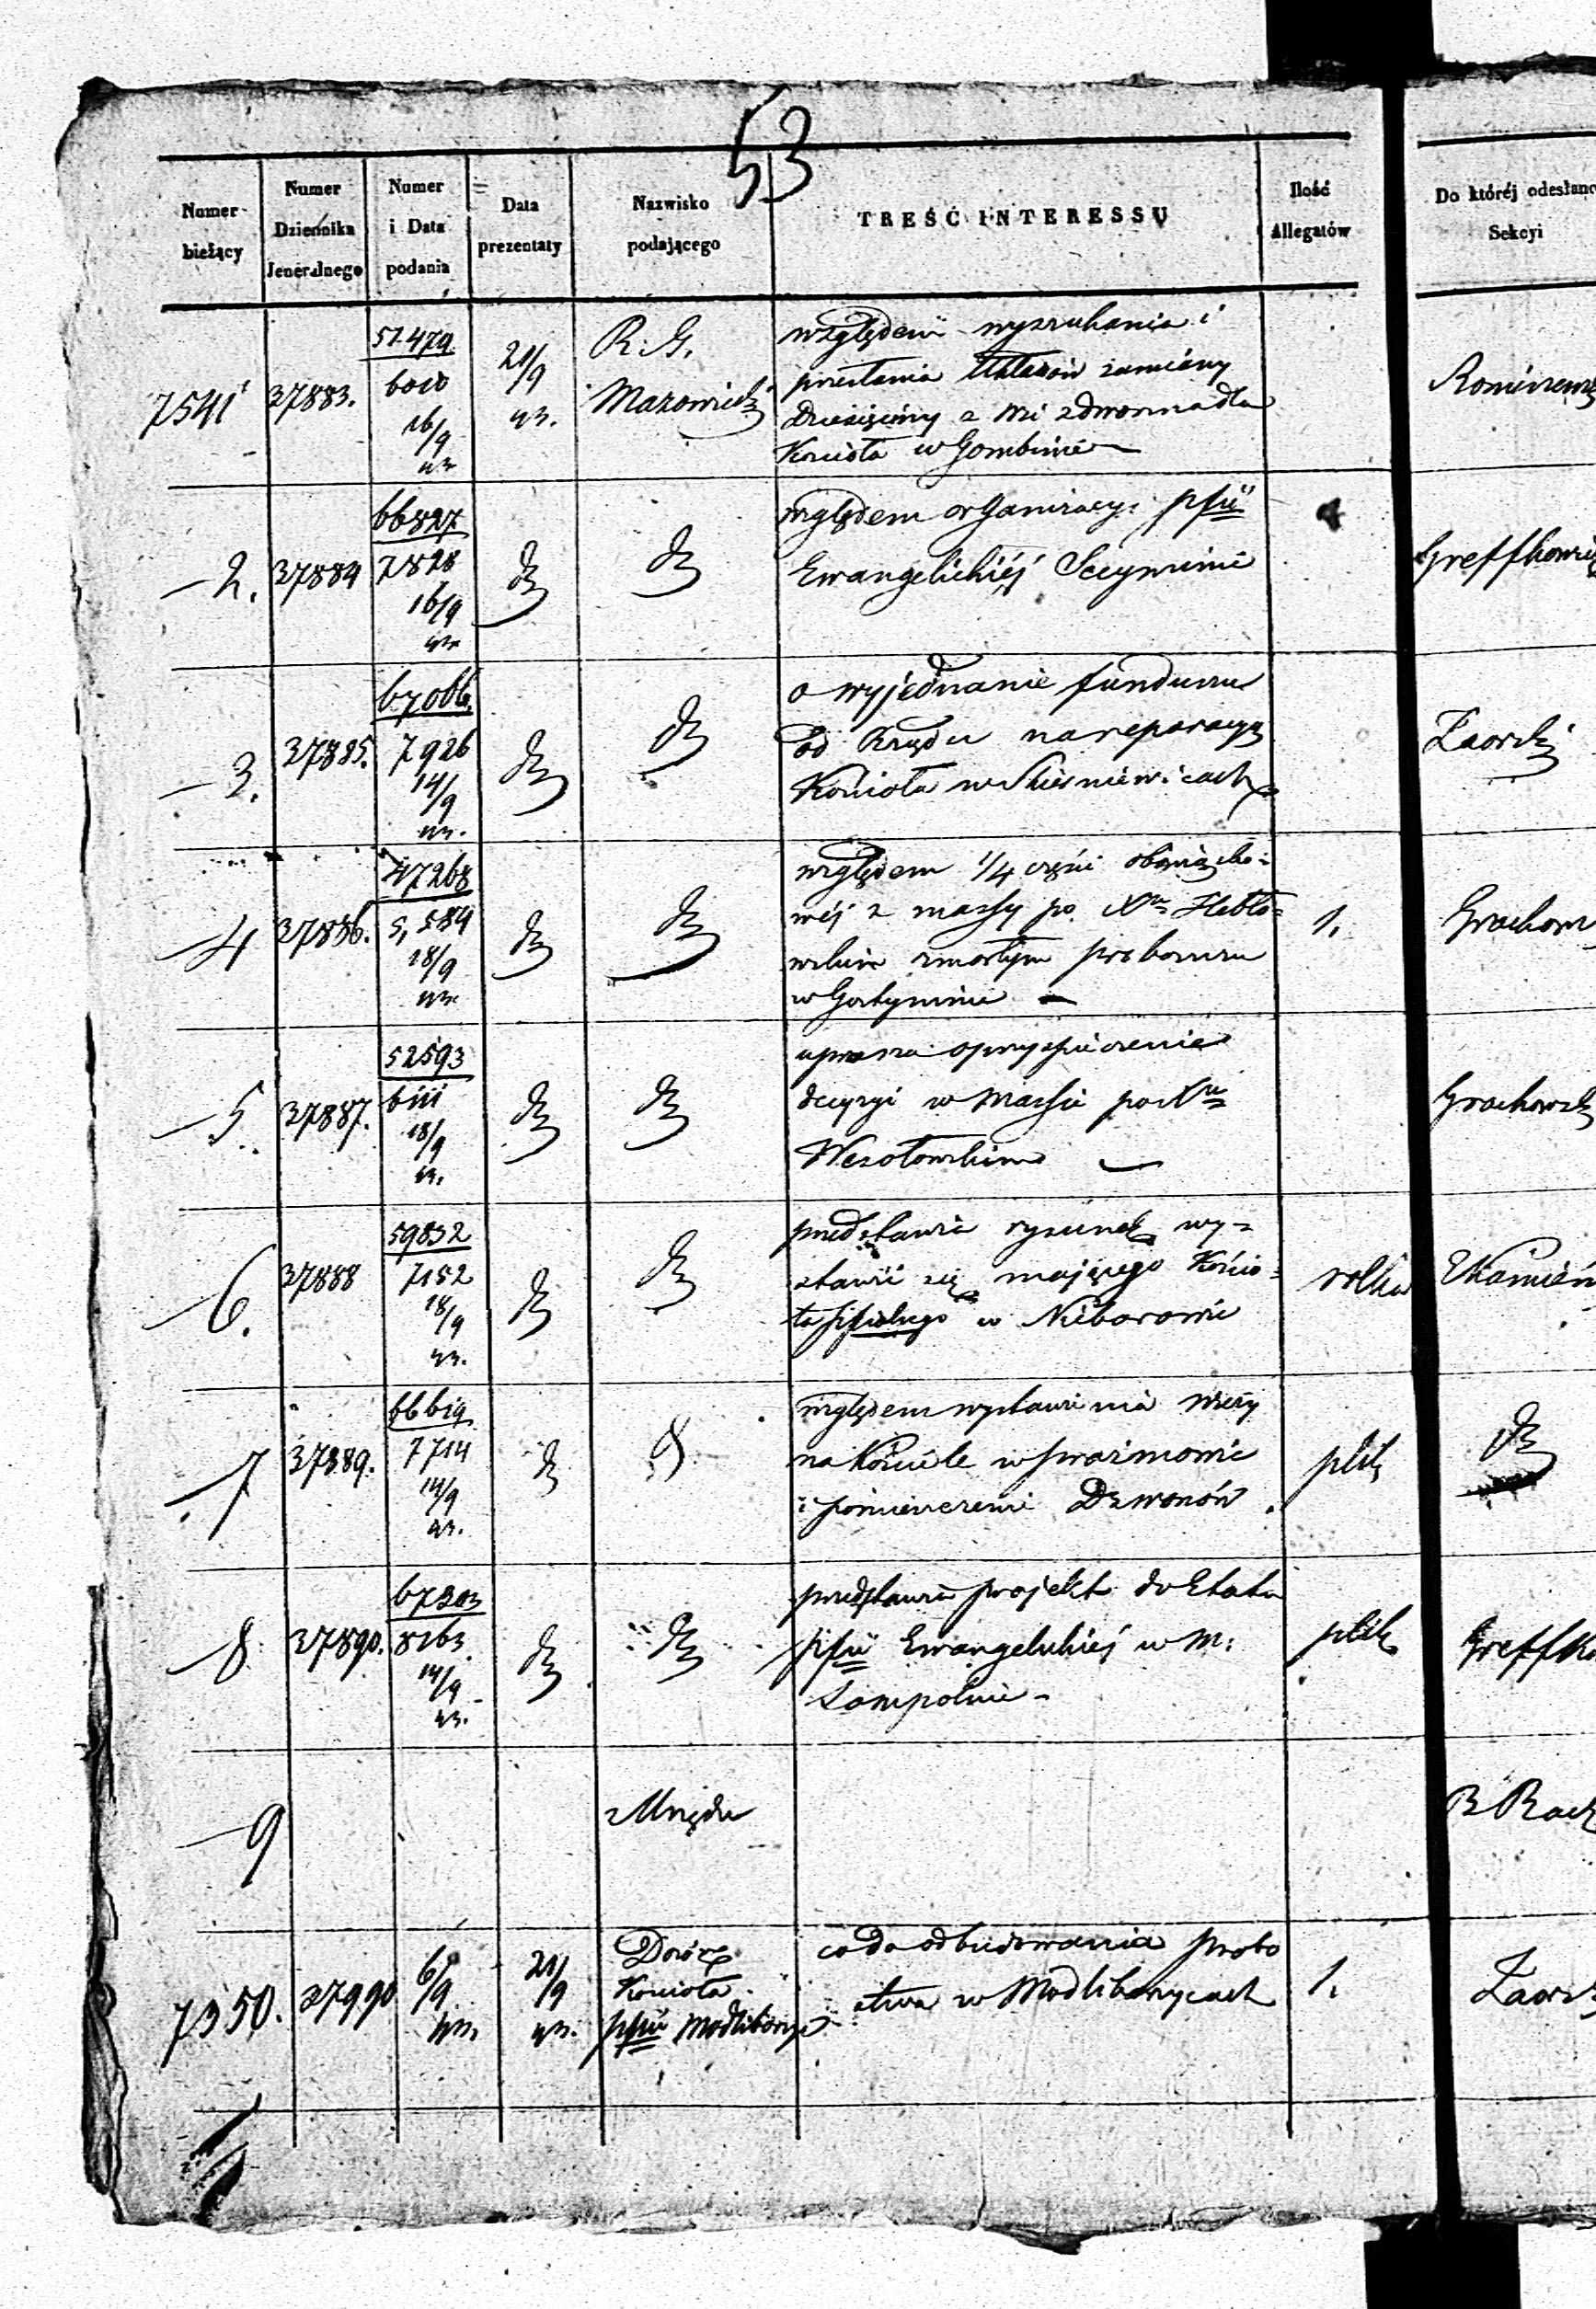 53
Numer bieżący
Numer Dziennika Jeneralnego
Numer i Data podania
Data prezentaty
Nazwisko podającego
TREŚĆ INTERESSU
Ilość Allegatów
Do któréj odesłano Sekcyi
7541 37883. 51479 6010 16/9 43 21/9 43. R. G. Mazowiecki
względem wyszukania i
przesłania Układów zamiany
Dziesięciny z Wsi Zdwornadla
Kościoła w Gombinie
2. 37884 66827 7828 16/9 43 dto dto
względem organizacyi pfii
Ewangelickiéj Secyminie
Greffkowi
3. 37885. 67066. 7926 14/9 43. dto dto
o wyjednanie funduszu
od Rządu na reparacyą
Kościoła w Skierniewicach
Zaorski
4 37886. 47268 5,584 18/9 43 dto dto
względem 1/4 części
wéj z massy po Xu
zmarłym proboszczu
1.
Grochows
5. 37887. 52593 6111 18/9 43. dto dto
uprasza o przyspieszenie
decyzyi w Massie po Xu
Wesołowskim
Grochowsk
6. 37888 59832 7152 18/9 43. dto dto
przedstawia rysunek wy-
stawić się mającego Kościo-
ła pfialnego w Nieborowie
rolka
7 37889. 66619 7714 14/9 43. dto dto
względem wystawienia wieży
na Kościele w Praźmowie
i pomieszczenie Dzwonów
plik
dto
8 37890. 67303 8163 14/9 43. dto dto
przedstawia projekt do Etatu
pfii Ewangelickiéj w M:
Sompolnie
plik
Greffko
9 z Urzędu
7550. 37990 6/9 43. 21/9 43. Dozór
Kościoła
pfii Modliborzyc
co do odbudowania probo
stwa w Modliborzycach
1.
Zaors